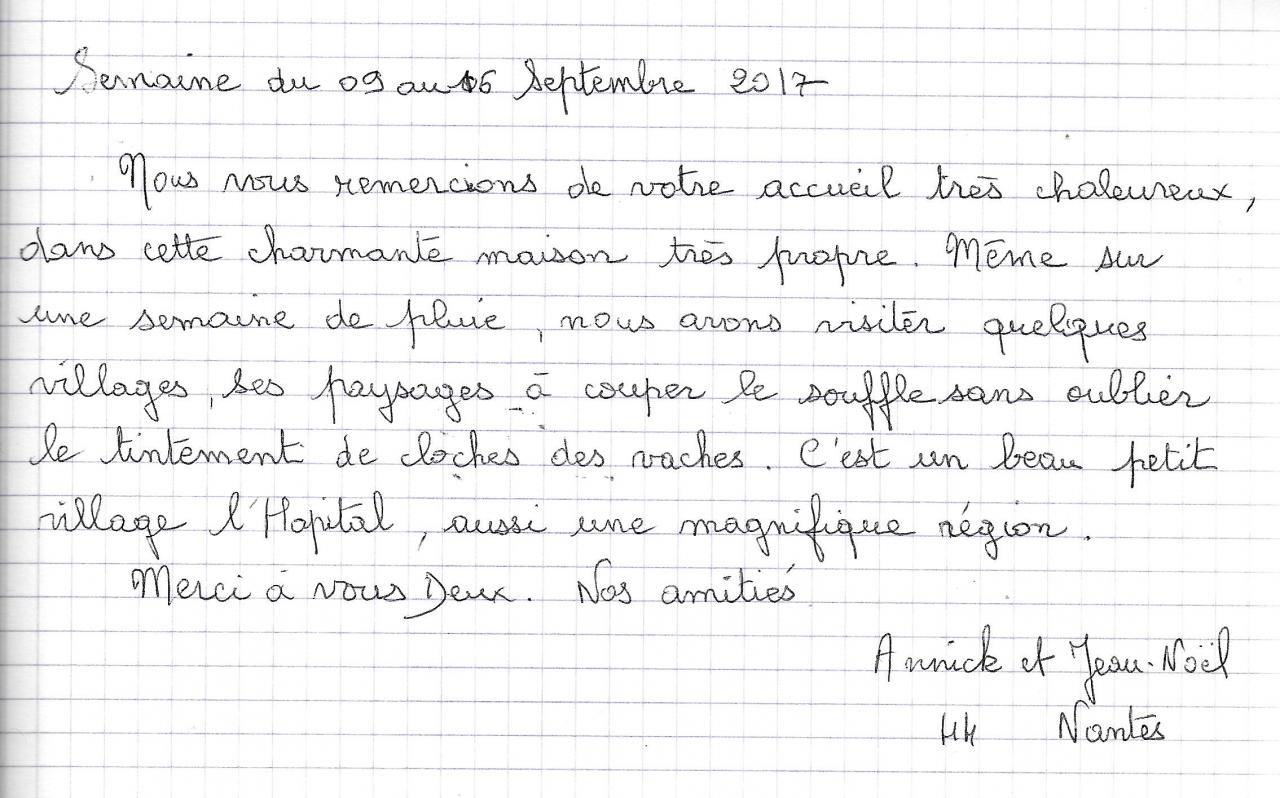 Semaine du 09 au 16 Septembre 2017
Nous vous remercions de votre accueil très chaleureux,
dans cette charmante maison très propre. Même sur
une semaine de pluie, nous avons visiter quelques
villages, ses paysages à couper le souffle sans oublier
le tintement de cloches des vaches. C'est un beau petit
village l'Hopital, aussi une magnifique région.
Merci à vous Deux. Nos amitiés
Annick et Jean-Noël
44 Nantes